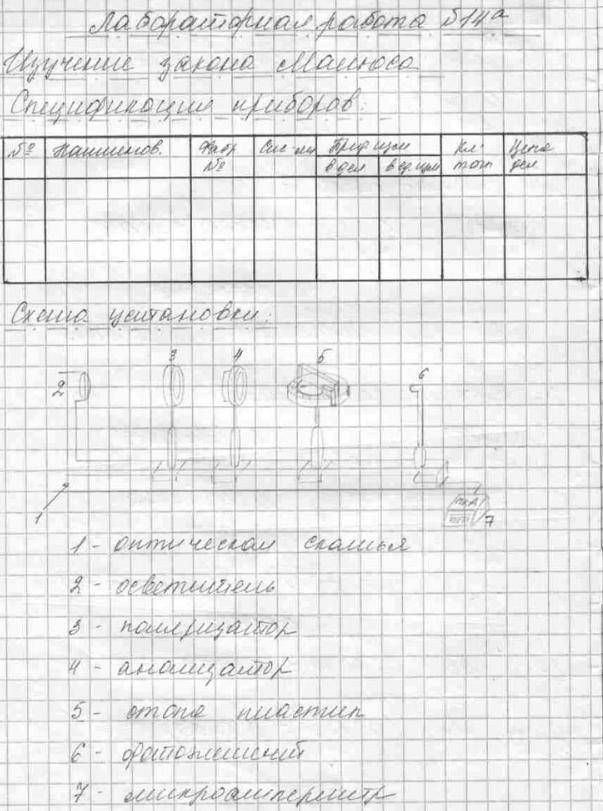 Лабораторная работа №14а
Изучение закона Малюса
Спецификация приборов:
№ Наименов. Фабр № Сис-ма Пред изм в дел в ед. изм Кл. точн Цена дел
Схема установки:
3 4 5
2 6
1 мкА 7
1 - оптическая скамья
2 - осветитель
3 - поляризатор
4 - анализатор
5 - стопа пластин
6 - фотоэлемент
7 - микроамперметр